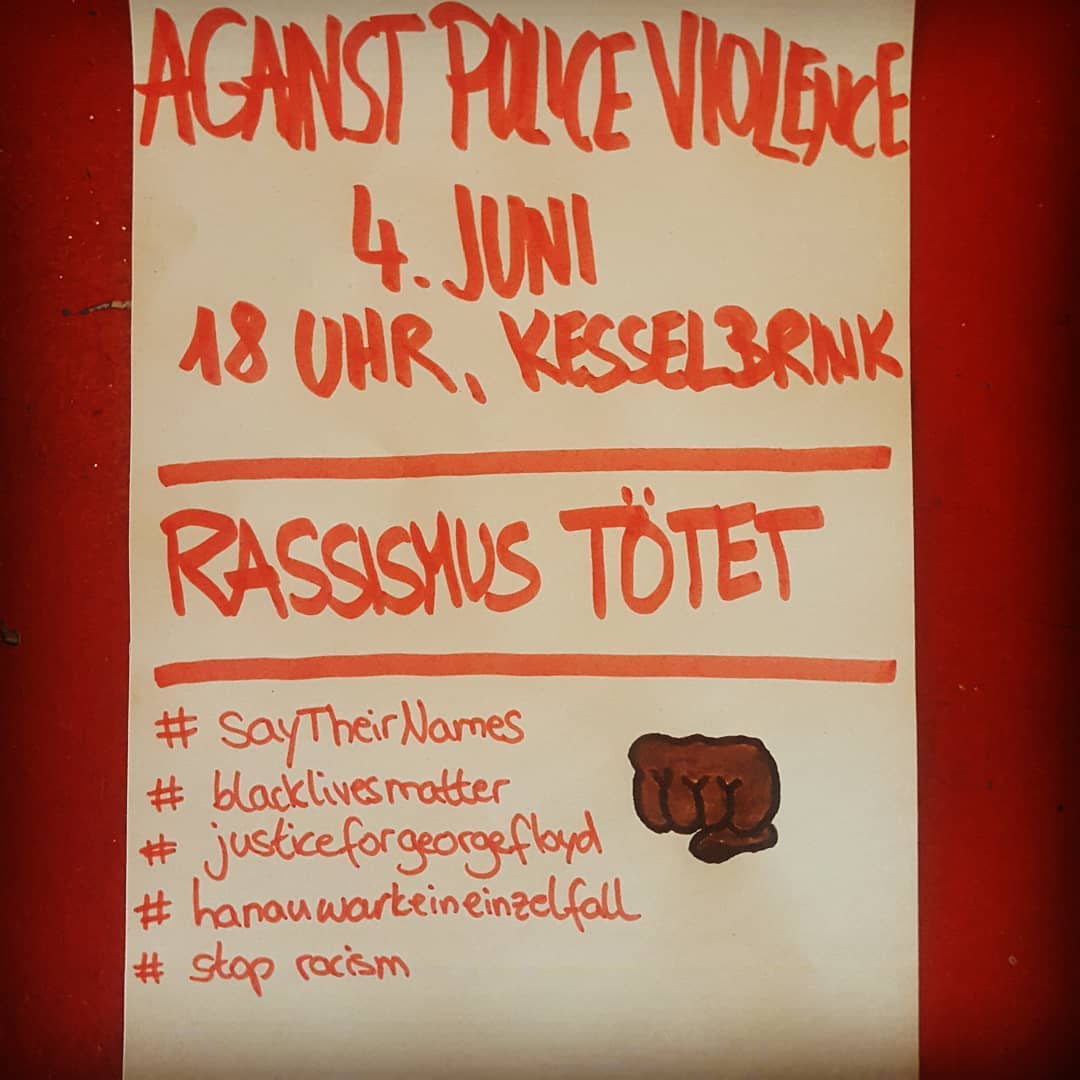 AGAINST POLICE VIOLENCE
4. JUNI
18 UHR, KESSELBRINK
RASSISMUS TÖTET
# SayTheirNames
# blacklivesmatter
# justiceforgeorgefloyd
# hanauwarkeineinzelfall
# stop racism